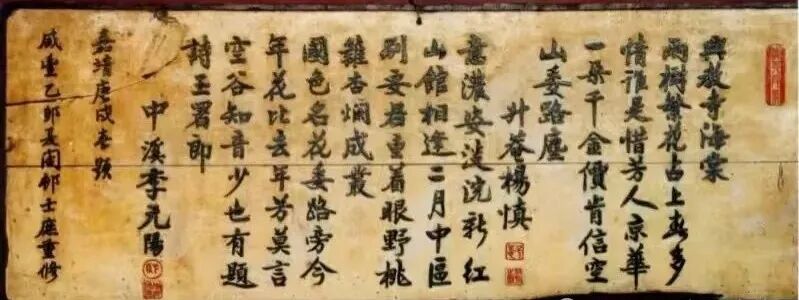 興教寺海棠
兩樹繁花占上春多
情誰是惜芳人京華
一朵千金價肯信空
山委路塵
升菴楊慎
意濃姿淡浣新紅
山館相逢二月中區
別君重着眼野桃
雜杏爛成叢
國色名花委路旁今
年花比去年芳莫言
空谷知音少也有題
詩玉署郎
中溪李元陽
嘉靖庚戌春題
咸豐乙卯闔邨士庶重修